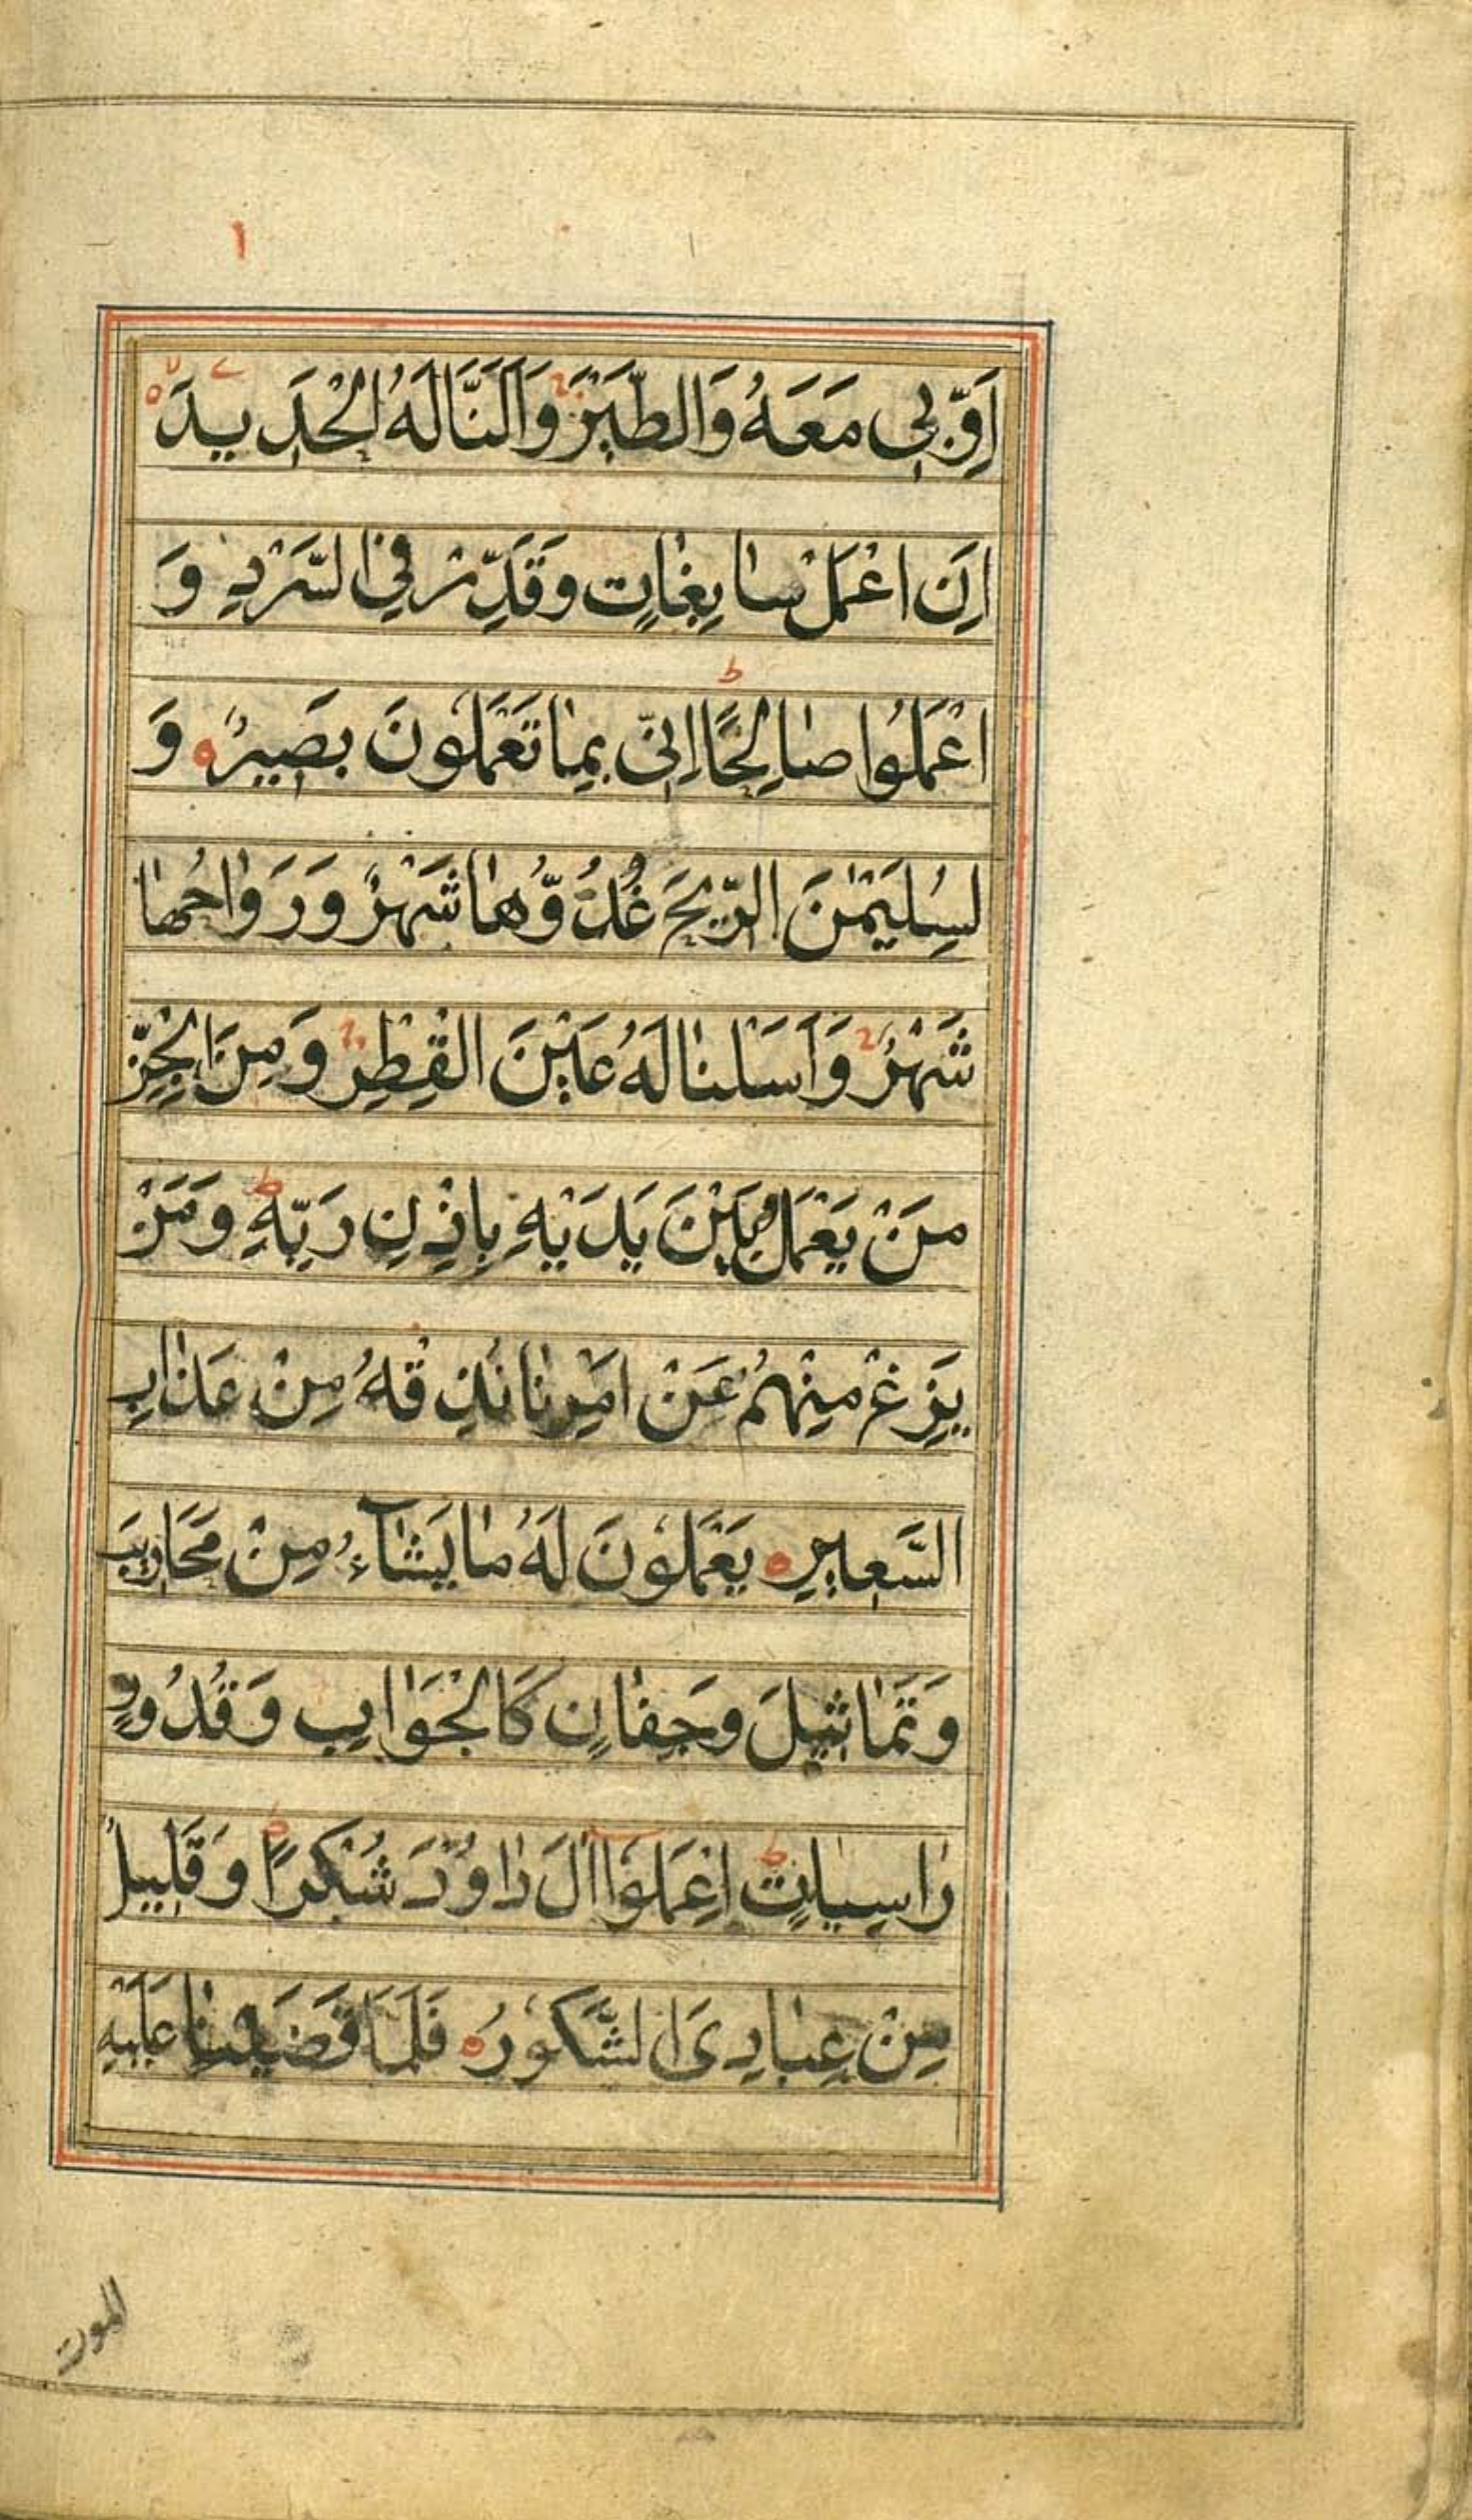 ١
اَوِّبِى مَعَهُ وَالطَّيْرَ وَاَلَنَّا لَهُ الْحَدِيدَ
اَنِ اعْمَلْ سٰابِغٰاتٍ وَقَدِّرْ فِى السَّرْدِ وَ
اعْمَلُوا صٰالِحًا اِنِّى بِمٰا تَعْمَلُونَ بَصِيرٌ وَ
لِسُلَيْمٰنَ الرِّيحَ غُدُوُّهٰا شَهْرٌ وَرَوٰاحُهٰا
شَهْرٌ وَاَسَلْنٰا لَهُ عَيْنَ الْقِطْرِ وَمِنَ الْجِنِّ
مَنْ يَعْمَلُ بَيْنَ يَدَيْهِ بِاِذْنِ رَبِّهِ وَمَنْ
يَزِغْ مِنْهُمْ عَنْ اَمْرِنٰا نُذِقْهُ مِنْ عَذٰابِ
السَّعِيرِ يَعْمَلُونَ لَهُ مٰا يَشٰآءُ مِنْ مَحَارِيبَ
وَتَمٰاثِيلَ وَجِفٰانٍ كَالْجَوَابِ وَقُدُورٍ
رٰاسِيٰاتٍ اِعْمَلُوا اٰلَ دٰاوُدَ شُكْرًا وَقَلِيلٌ
مِنْ عِبٰادِىَ الشَّكُورُ فَلَمَّا قَضَيْنٰا عَلَيْهِ
الموت